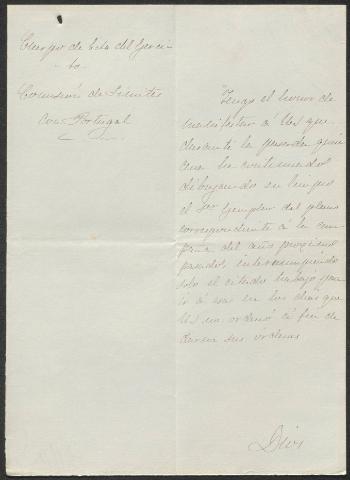 Cuerpo de E. M. del Ejérci-
to
Comisión de Límites
con Portugal
Tengo el honor de
manifestar á VS que
durante la pasada quin
cena he continuado
dibujando en limpio
el 3er Ejemplar del plano
correspondiente á la cam
paña del año proximo
pasado, interrumpiendo
solo el citado trabajo
los dias que
VS me ordenó á fin de
darme sus órdenes
Dios